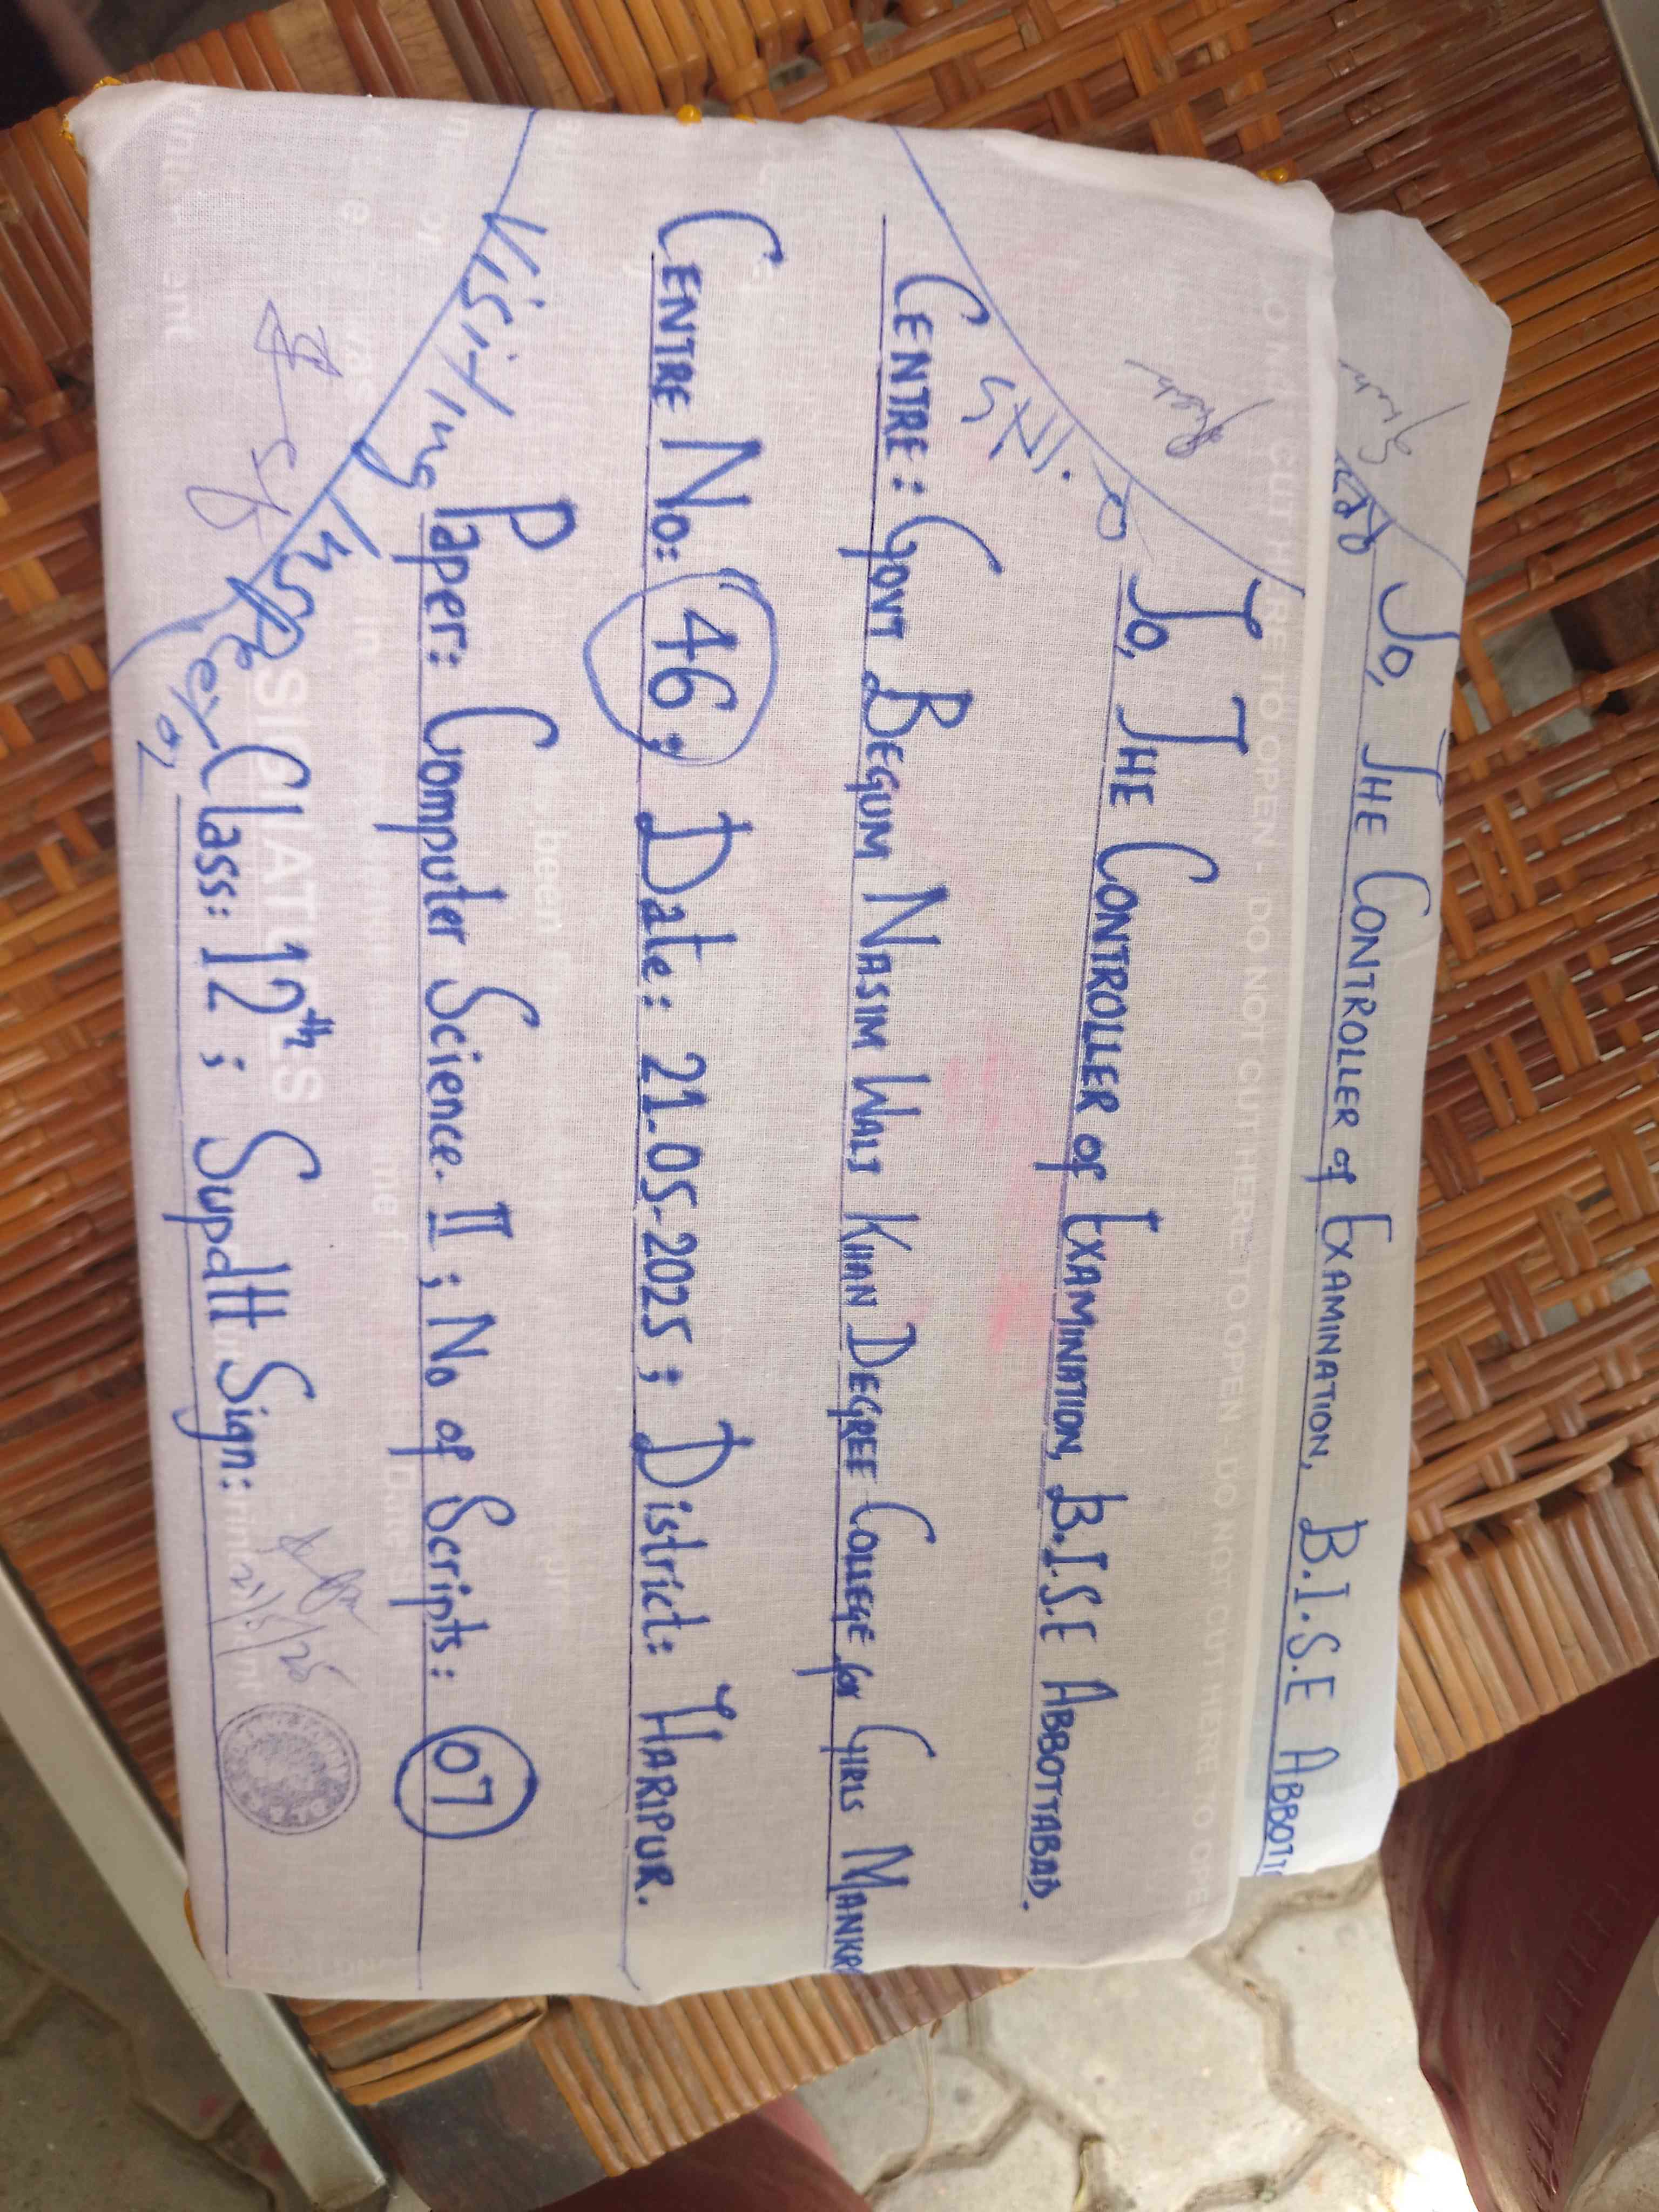 To, THE CONTROLLER of EXAMINATION, B.I.S.E ABBOTT
To, THE CONTROLLER of EXAMINATION, B.I.S.E ABBOTTABAD.
CENTRE: GOVT BEGUM NASIM WALI KHAN DEGREE COLLEGE for GIRLS MANKR
CENTRE No: 46; Date: 21-05-2025; District: HARIPUR.
Paper: Computer Science. II; No of Scripts: 07
Visiting Inspector
Class: 12th; Supdtt Sign:
21/5/25
RE TO OPEN - DO NOT CUT HERE TO OPEN - DO NOT CUT HERE TO OPE
SIGNATURES